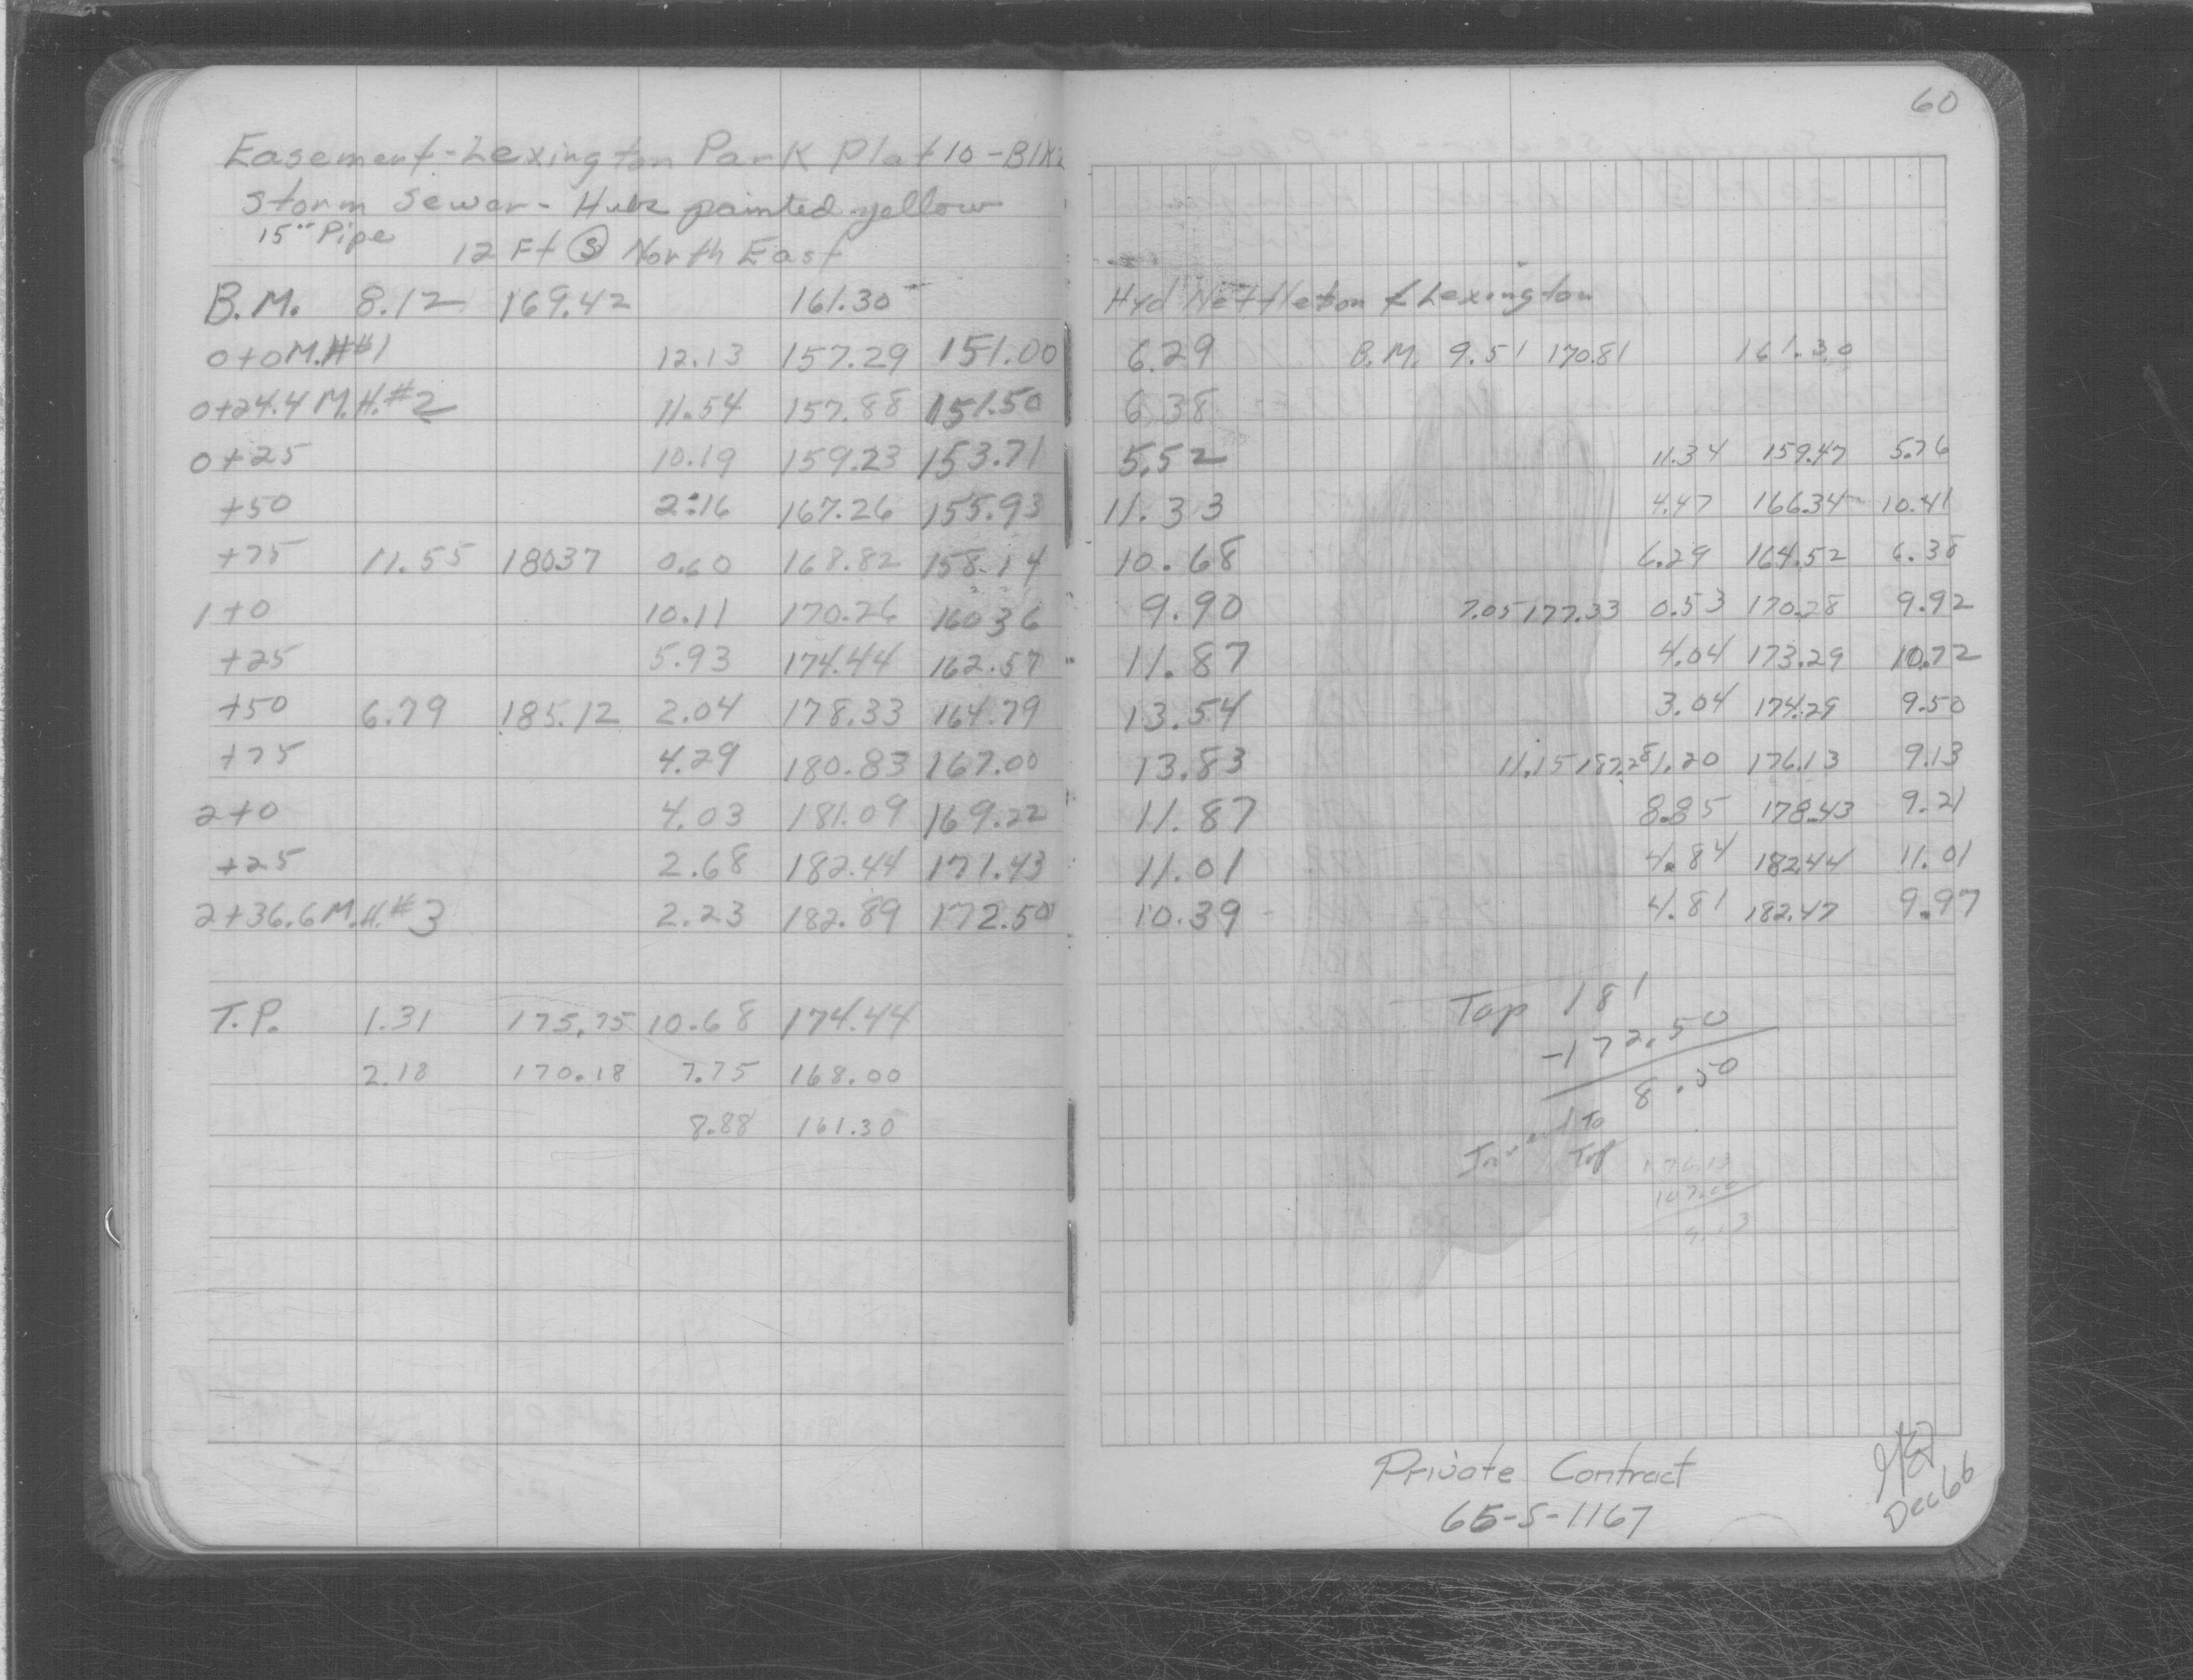 60
Easement-Lexington Park Plat 10-Blk
Storm Sewer- Hubs painted yellow
15" Pipe 12 Ft (S) North East
B.M. 8.12 169.42 161.30 Hyd Nettleton & Lexington
0+0 M.H#1 12.13 157.29 151.00 6.29 B.M. 9.51 170.81 161.30
0+24.4 M.H.#2 11.54 157.88 151.50 6.38
0+25 10.19 159.23 153.71 5.52 11.34 159.47 5.76
+50 2.16 167.26 155.93 11.33 4.47 166.34 10.41
+75 11.55 18037 0.60 168.82 158.14 10.68 6.29 164.52 6.38
1+0 10.11 170.26 160 36 9.90 7.05 177.33 0.53 170.28 9.92
+25 5.93 174.44 162.57 11.87 4.04 173.29 10.72
+50 6.79 185.12 2.04 178.33 164.79 13.54 3.04 174.29 9.50
+75 4.29 180.83 167.00 13.83 11.15 187.28 1.20 176.13 9.13
2+0 4.03 181.09 169.22 11.87 8.85 178.43 9.21
+25 2.68 182.44 171.43 11.01 4.84 182.44 11.01
2+36.6 M.H.#3 2.23 182.89 172.50 10.39 4.81 182.47 9.97
T.P. 1.31 175.75 10.68 174.44
2.18 170.18 7.75 168.00
8.88 161.30
Top 181
-172.50
8.50
To
Top
176.13
167.00
9.13
Private Contract
65-S-1167
Dec 66